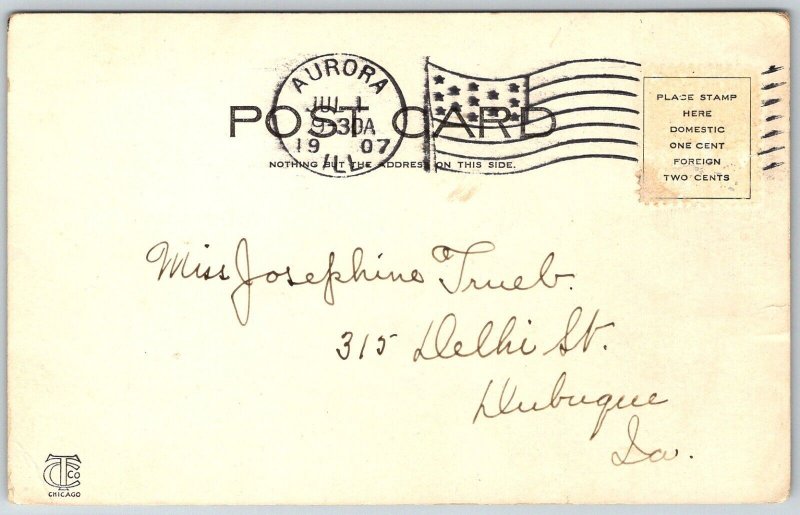 AURORA
JUL 1
9-30A
19 07
ILL
POST CARD
NOTHING BUT THE ADDRESS ON THIS SIDE.
PLACE STAMP
HERE
DOMESTIC
ONE CENT
FOREIGN
TWO CENTS
Miss Josephine Trueb.
315 Delhi St.
Dubuque
Ia.
CTCo
CHICAGO